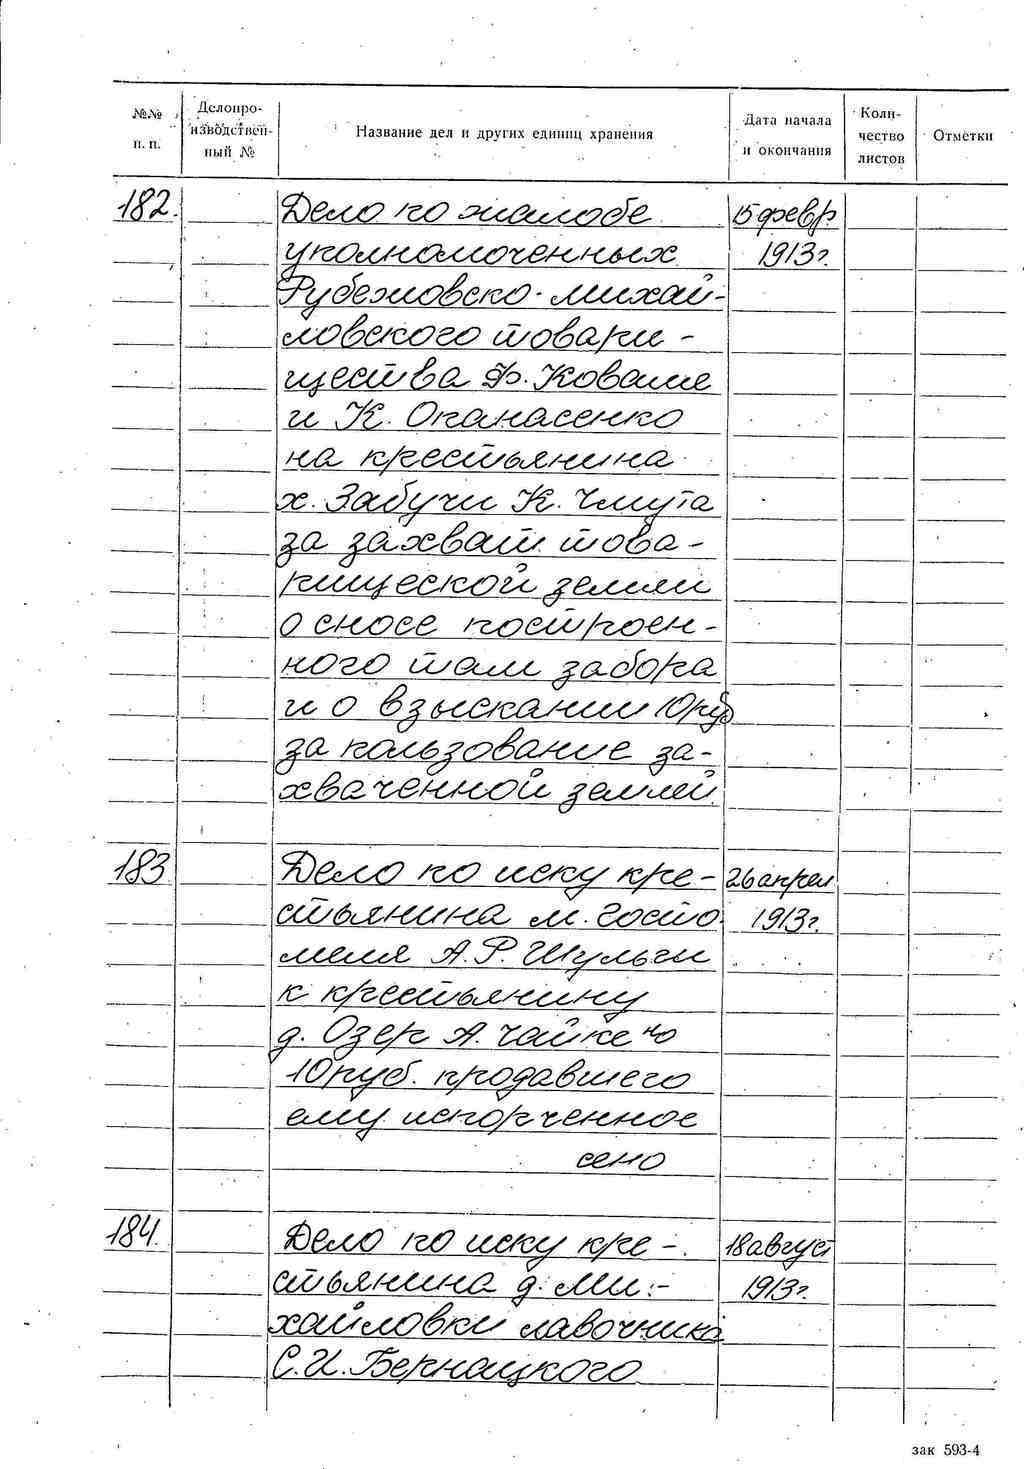 №№ п. п.
Делопроизводственный №
Название дел и других единиц хранения
Дата начала и окончания
Количество листов
Отметки
182. Дело по жалобе 15 февр.
уполномоченных 1913г.
Рубежовско-Михай-
ловского товари-
щества Ф. Коваля
и К. Опанасенко
на крестьянина
х. Забучи К. Чмута
за захват това-
рищеской земли
о сносе построен-
ного там забора
и о взыскании 10руб
за пользование за-
хваченной землей
183 Дело по иску кре- 26 апрел
стьянина м. Госто- 1913г.
меля А.Р. Шульги
к крестьянину
д. Озер А. Чайке на
10руб. продавшего
ему испорченное
сено
184. Дело по иску кре- 18 август
стьянина д. Ми- 1913г.
хайловки лавочника
С.И. Бернацкого
зак 593-4